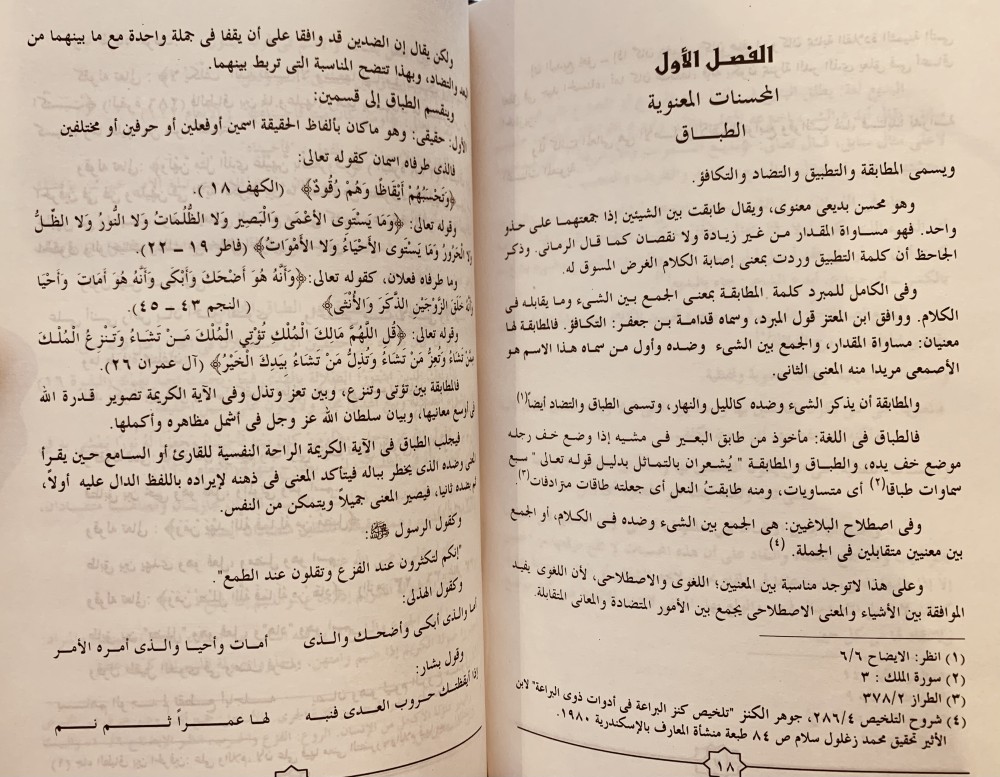 الفصل الأول
المحسنات المعنوية
الطباق
ويسمى المطابقة والتطبيق والتضاد والتكافؤ.
وهو محسن بديعى معنوى، ويقال طابقت بين الشيئين إذا جمعتهما على حذو
واحد. فهو مساواة المقدار من غير زيادة ولا نقصان كما قال الرمانى. وذكر
الجاحظ أن كلمة التطبيق وردت بمعنى إصابة الكلام الغرض المسوق له.
وفى الكامل للمبرد كلمة المطابقة بمعنى الجمع بين الشىء وما يقابله فى
الكلام. ووافق ابن المعتز قول المبرد، وسماه قدامة بن جعفر: التكافؤ. فالمطابقة لها
معنيان: مساواة المقدار، والجمع بين الشىء وضده وأول من سماه هذا الاسم هو
الأصمعى مريدا منه المعنى الثانى.
والمطابقة أن يذكر الشىء وضده كالليل والنهار، وتسمى الطباق والتضاد أيضاً(١)
فالطباق فى اللغة: مأخوذ من طابق البعير فى مشيه إذا وضع خف رجله
موضع خف يده، والطباق والمطابقة " يُشعران بالتماثل بدليل قوله تعالى " سبع
سماوات طباقا(٢) أى متساويات، ومنه طابقتُ النعل أى جعلته طاقات مترادفات(٣).
وفى اصطلاح البلاغيين: هى الجمع بين الشىء وضده فى الكلام، أو الجمع
بين معنيين متقابلين فى الجملة. (٤)
وعلى هذا لاتوجد مناسبة بين المعنيين؛ اللغوى والاصطلاحى، لأن اللغوى يفيد
الموافقة بين الأشياء والمعنى الاصطلاحى يجمع بين الأمور المتضادة والمعانى المتقابلة.
(١) انظر: الايضاح ٦/٦
(٢) سورة الملك : ٣
(٣) الطراز ٣٧٨/٢
(٤) شروح التلخيص ٢٨٦/٤، جوهر الكنز "تلخيص كنز البراعة فى أدوات ذوى البراعة" لابن
الأثير تحقيق محمد زغلول سلام ص ٨٤ طبعة منشأة المعارف بالإسكندرية ١٩٨٠.
١٨
ولكن يقال إن الضدين قد وافقا على أن يقفا فى جملة واحدة مع ما بينهما من
البعد والتضاد، وبهذا تتضح المناسبة التى تربط بينهما.
وينقسم الطباق إلى قسمين:
الأول: حقيقى: وهو ماكان بألفاظ الحقيقة اسمين أوفعلين أو حرفين أو مختلفين
فالذى طرفاه اسمان كقوله تعالى:
﴿وَتَحْسَبُهُمْ أَيْقَاظًا وَهُمْ رُقُودٌ﴾ (الكهف ١٨ ).
وقوله تعالى: ﴿وَمَا يَسْتَوِى الأَعْمَى وَالْبَصِير وَلا الظُّلُمَاتُ وَلا النُّورُ وَلا الظِّلُّ
وَلا الْحَرُورُ وَمَا يَسْتَوِى الأَحْيَاءُ وَلا الأَمْوَاتُ﴾ (فاطر ١٩ - ٢٢).
وما طرفاه فعلان، كقوله تعالى:﴿وَأَنَّهُ هُوَ أَضْحَكَ وَأَبْكَى وَأَنَّهُ هُوَ أَمَاتَ وَأَحْيَا
وَأَنَّهُ خَلَقَ الزَّوْجَيْنِ الذَّكَرَ وَالأُنْثَى﴾ ( النجم ٤٣ - ٤٥).
وقوله تعالى: ﴿قُلِ اللَّهُمَّ مَالِكَ الْمُلْكِ تُؤْتِي الْمُلْكَ مَنْ تَشَاءُ وَتَنْزِعُ الْمُلْكَ
مِمَّنْ تَشَاءُ وَتُعِزُّ مَنْ تَشَاءُ وَتُذِلُّ مَنْ تَشَاءُ بِيَدِكَ الْخَيْرُ﴾ (آل عمران ٢٦).
فالمطابقة بين تؤتى وتنزع، وبين تعز وتذل وفى الآية الكريمة تصوير قدرة الله
فى أوسع معانيها، وبيان سلطان الله عز وجل فى أشمل مظاهره وأكملها.
فيجلب الطباق فى الآية الكريمة الراحة النفسية للقارئ أو السامع حين يقرأ
وضده الذى يخطر بباله فيتأكد المعنى فى ذهنه لإيراده باللفظ الدال عليه أولاً،
بضده ثانيا، فيصير المعنى جميلاً ويتمكن من النفس.
وكقول الرسول ﷺ:
"إنكم لتكثرون عند الفزع وتقلون عند الطمع".
وكقول الهذلى:
أما والذى أبكى وأضحك والذى أمات وأحيا والذى أمره الأمر
وقول بشار:
إذا أيقظتك حروب العدى فنبه لها عمراً ثم نم